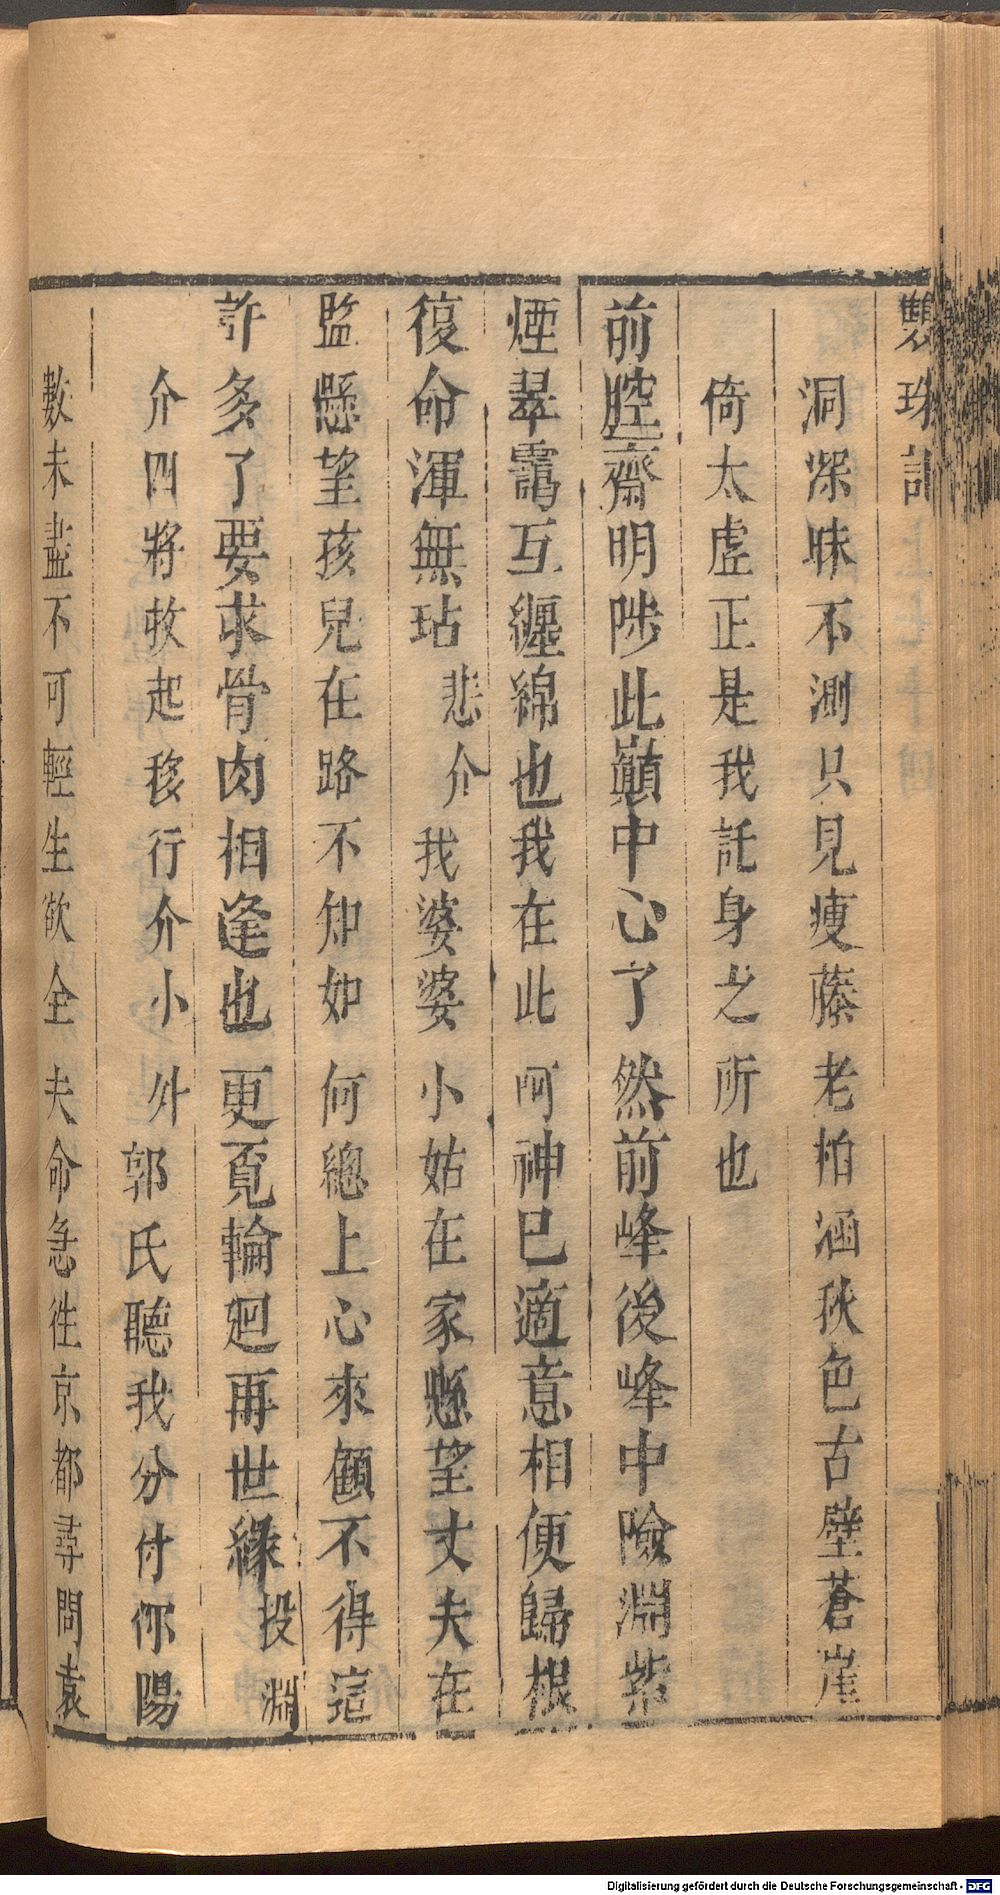 雙珠記
洞深昧不測只見瘦藤老柏涵秋色古壁蒼崖
倚太虛正是我託身之所也
前腔齋明陟此巔中心了然前峰後峰中險淵紫
煙翠靄互纏綿也我在此呵神已適意相便歸根
復命渾無玷悲介我婆婆小姑在家懸望丈夫在
監懸望孩兒在路不知如何總上心來顧不得這
許多了要求骨肉相逢也更覓輪迴再世緣投淵
介四將救起移行介小外郭氏聽我分付你陽
數未盡不可輕生欲全夫命急往京都尋問袁
Digitalisierung gefördert durch die Deutsche Forschungsgemeinschaft - DFG